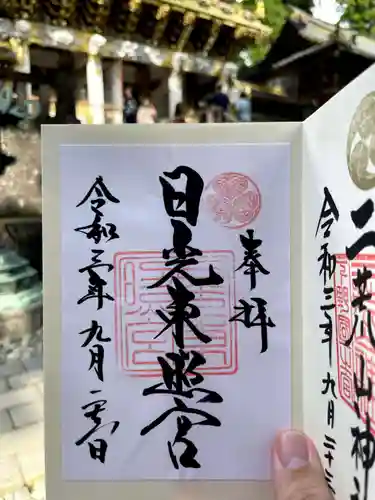 二荒山神社
令和三年九月二十
奉拝
日光東照宮
令和三年九月